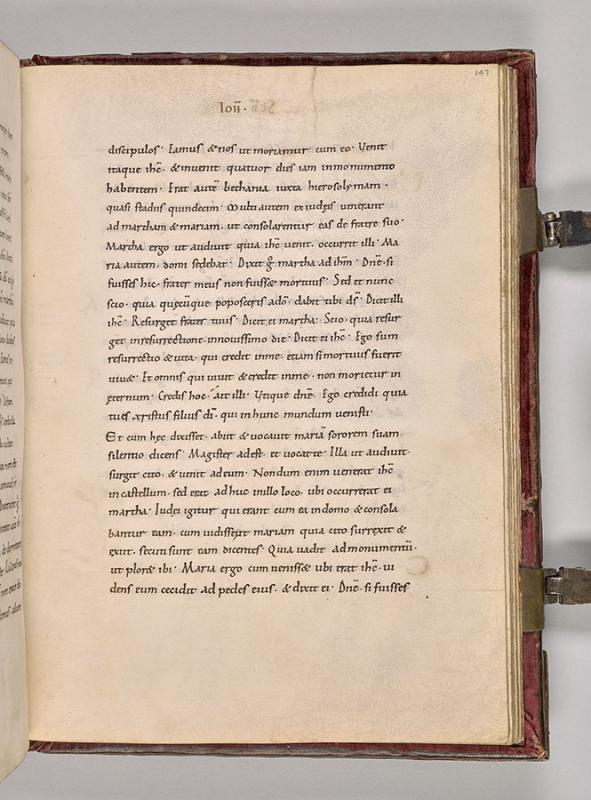 147
Ioħ·
discipulos· Eamus & nos ut moriamur cum eo· Venit
itaque ihc̄· & invenit quatuor dies iam inmonumento
habentem· Erat autē bethania iuxta hierosolymam·
quasi stadiis quindecim· Multi autem ex iudęis venerant
ad martham & mariam· ut consolarentur eas de fratre suo·
Martha ergo ut audivit quia ihc̄ venit· occurrit illi· Ma
ria autem· domi sedebat· Dixit g̊ martha ad ihm̄· Dn̄e· si
fuisses hic· frater meus non fuiss& mortuus· Sed et nunc
scio· quia quęcūque poposceris adō· dabit tibi ds̄· Dicit illi
ihc̄· Resurget frater tuus· Dicit ei martha· Scio· quia resur
get inresurrectione innovissimo die· Dicit ei ihc̄· Ego sum
resurrectio & vita· qui credit inme· etiam si mortuus fuerit
viv&· Et omnis qui vivit & credit inme· non morietur in
ęternum· Credis hoc· Ait illi· Vtique dn̄e· Ego credidi quia
tu es xristus filius dī· qui in hunc mundum venisti·
Et cum hęc dixisset· abiit & vocavit mariā sororem suam
silentio dicens· Magister adest· et vocat te· Illa ut audivit·
surgit cito· & venit ad eum· Nondum enim venerat ihc̄
in castellum· sed erat ad huc inillo loco· ubi occurrerat ei
martha· Iudei igitur qui erant cum ea in domo & consola
bantur eam· cum vidissent mariam quia cito surrexit &
exiit· secuti sunt eam dicentes· Quia vadit ad monumentū·
ut plor& ibi· Maria ergo cum veniss& ubi erat ihc̄· vi
dens eum cecidit ad pedes eius· & dixit ei· Dn̄e· si fuisses